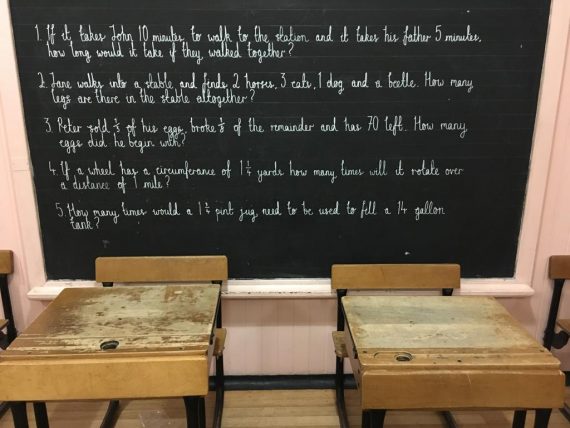 1. If it takes John 10 minutes, to walk to the station and it takes his father 5 minutes,
how long would it take if they walked together?
2. Jane walks into a stable and finds 2 horses, 3 cats, 1 dog, and a beetle. How many
legs are there in the stable altogether?
3. Peter sold of his eggs, broke ⅛ of the remainder and has 70 left. How many
eggs did he begin with?
4. If a wheel has a circumferance of 1¼ yards how many times will it rotate over
a distance of 1 mile?
5. How many times would a pint jug need to be used to fill a 14 gallon
tank?